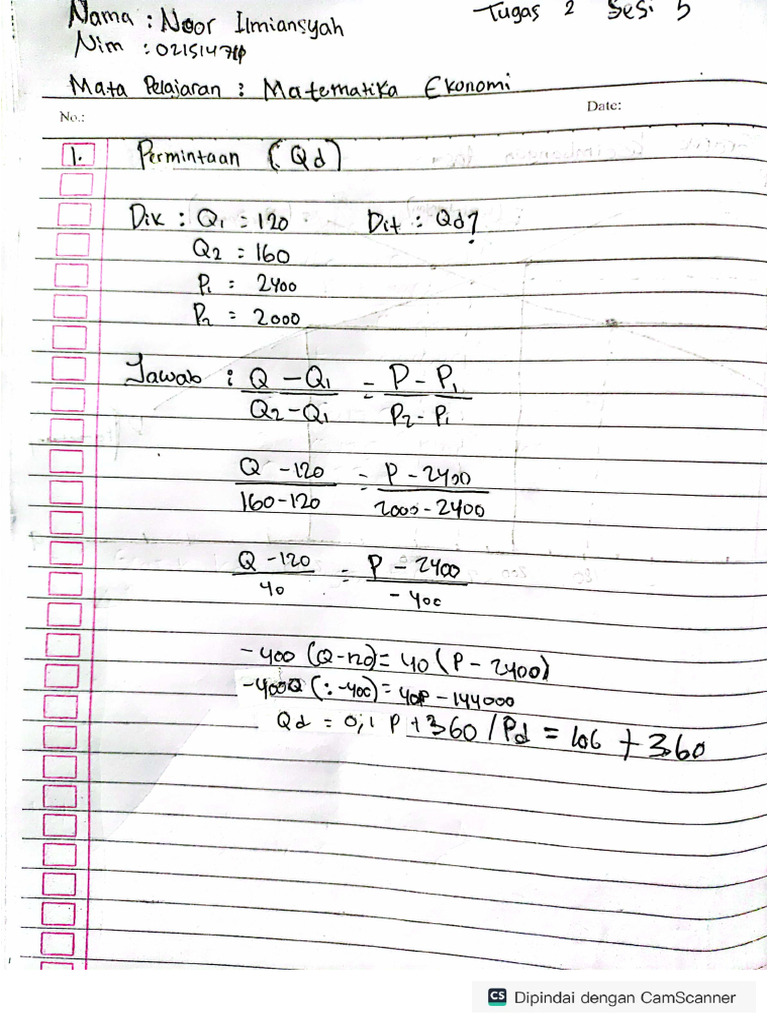 Nama : Noor Ilmiansyah Tugas 2 Sesi 5
Nim :
Mata Pelajaran : Matematika Ekonomi
No.: Date:
1. Permintaan (Qd)
Dik : Q1 = 120 Dit : Qd?
Q2 = 160
P1 = 2400
P2 = 2000
Jawab : Q - Q1 / Q2 - Q1 = P - P1 / P2 - P1
Q - 120 / 160 - 120 = P - 2400 / 2000 - 2400
Q - 120 / 40 = P - 2400 / - 400
-400 (Q - 120) = 40 (P - 2400)
-400Q (: -400) = 40P - 144000
Qd = 0,1 P + 360 / Pd = + 360
CS Dipindai dengan CamScanner